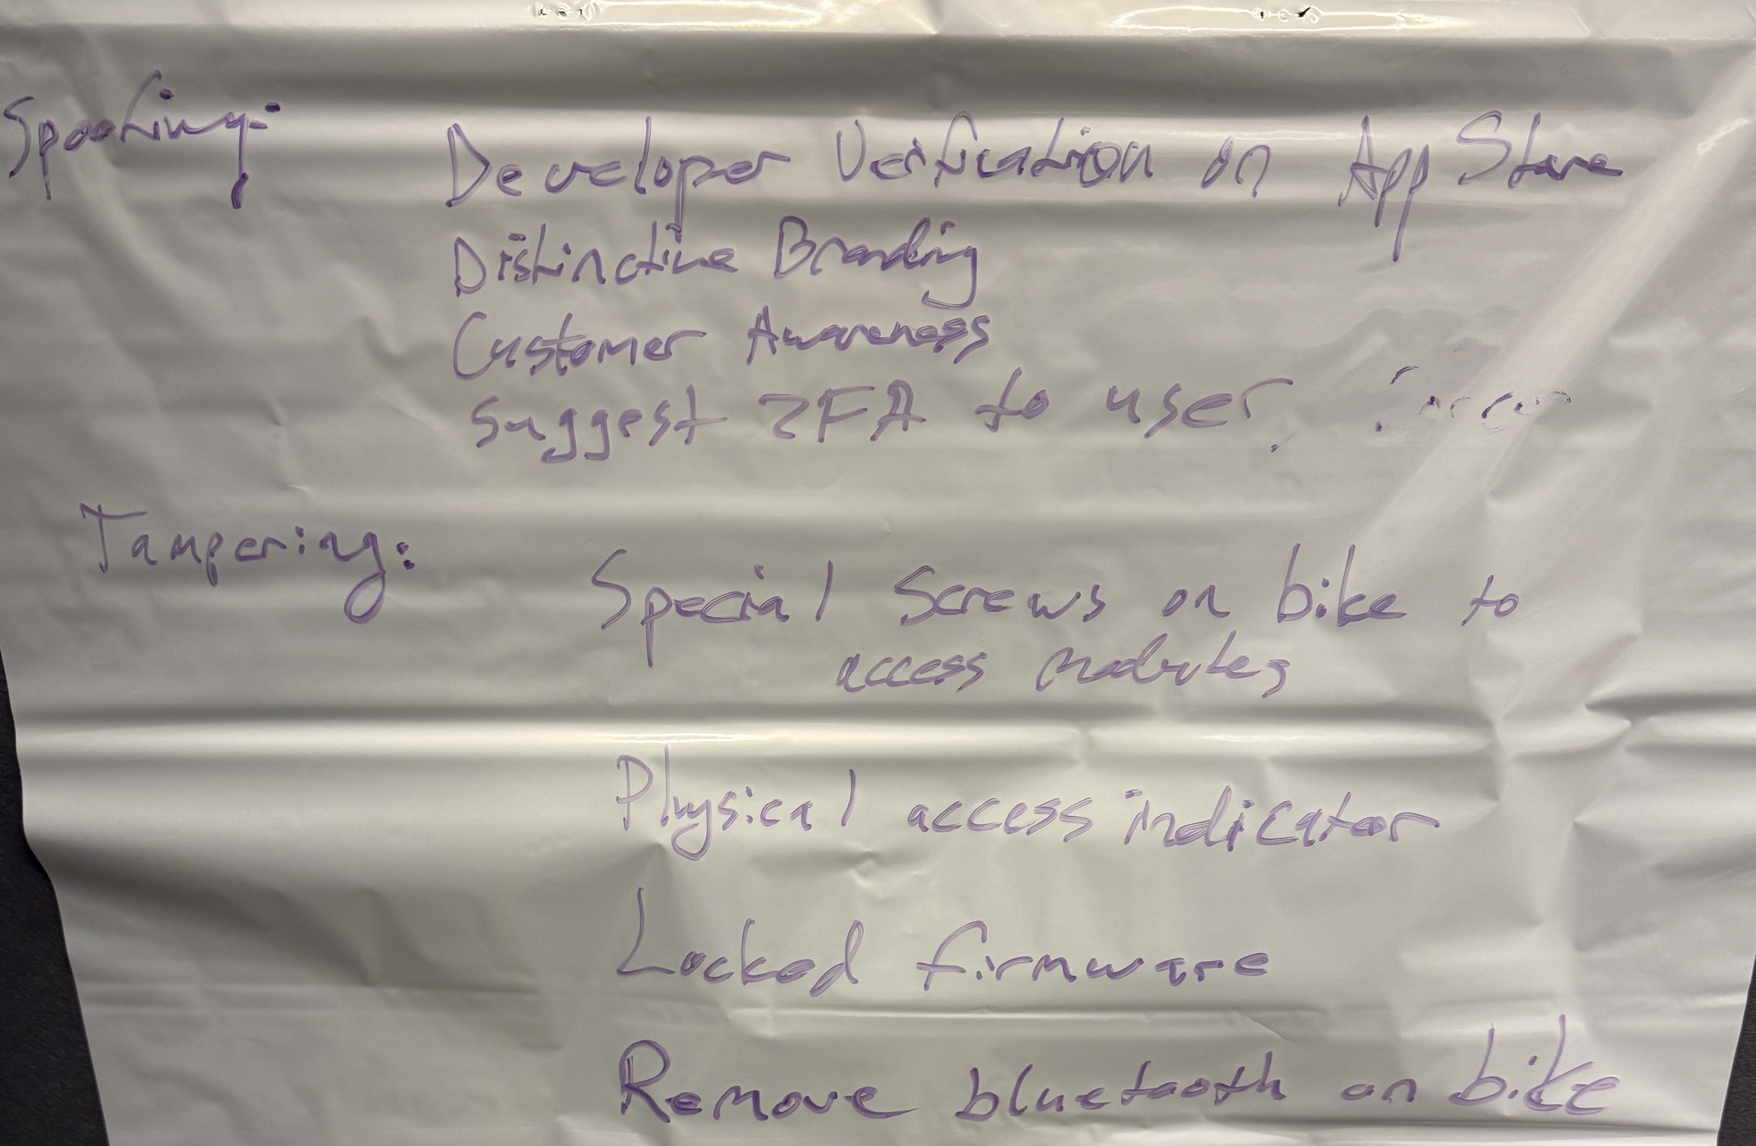 Spoofing:
Developer Verification on App Store
Distinctive Branding
Customer Awareness
Suggest 2FA to user,
Tampering:
Special screws on bike to
access modules
Physical access indicator
Locked firmware
Remove bluetooth on bike